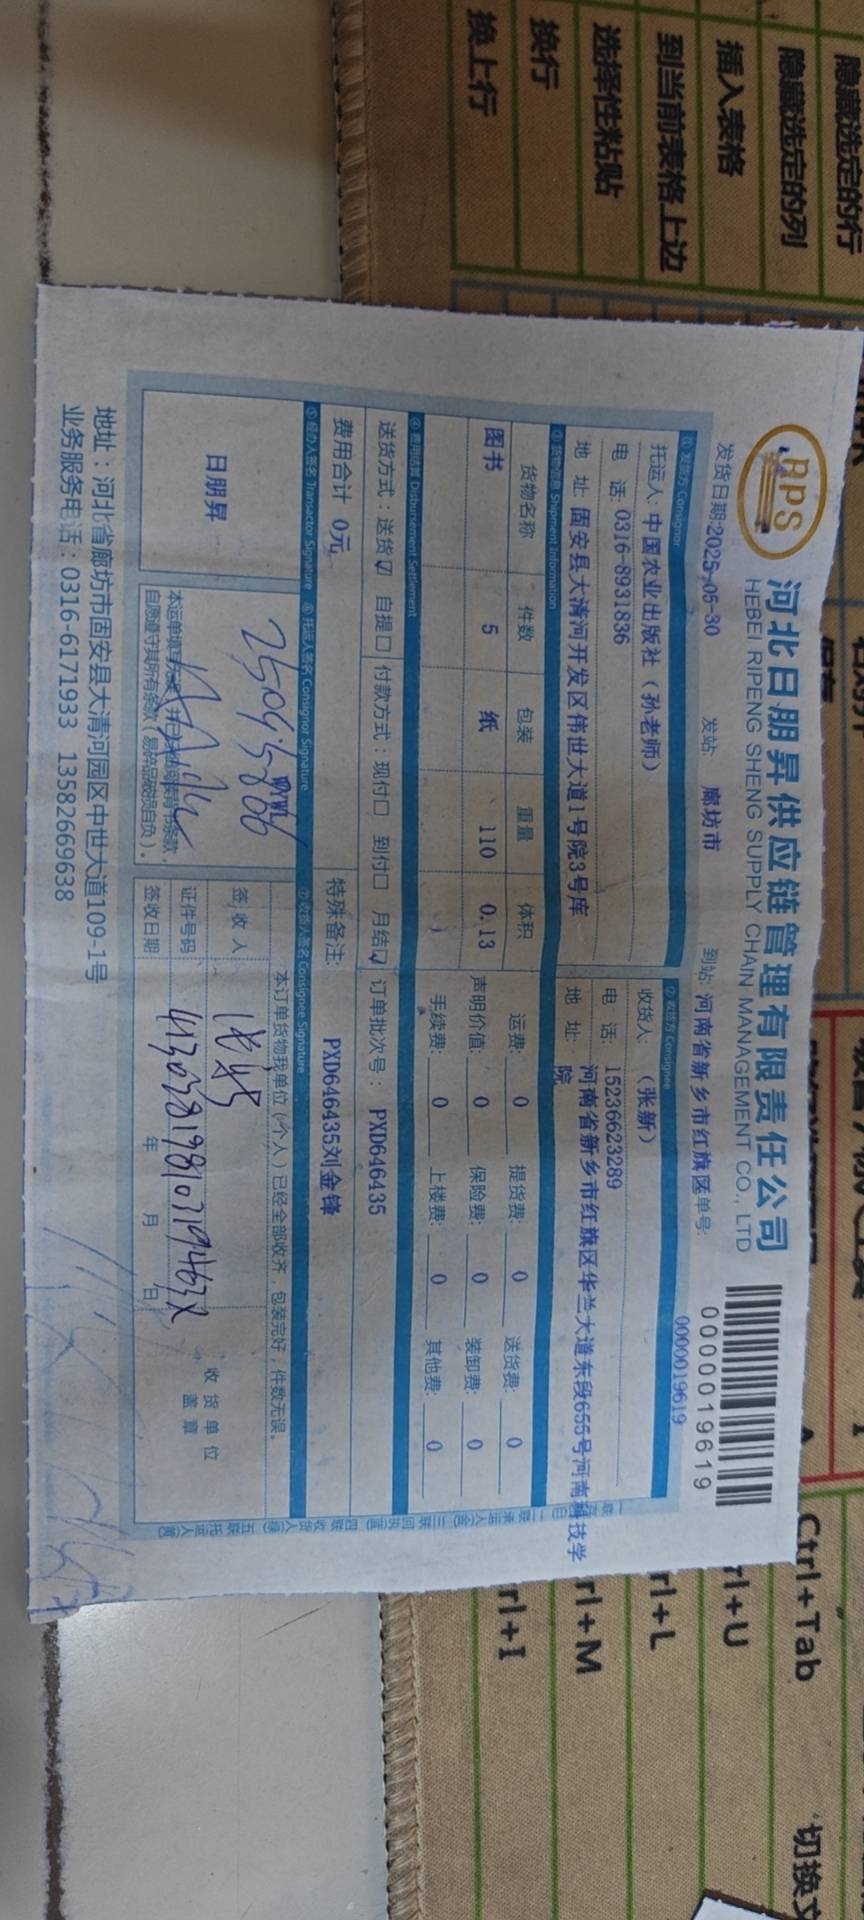 RPS
河北日朋昇供应链管理有限责任公司
HEBEI RIPENG SHENG SUPPLY CHAIN MANAGEMENT CO., LTD
0000019619
发货日期:2025-05-30 发站: 廊坊市 到站: 河南省新乡市红旗区 单号: 0000019619
①发货方 Consignor ②收货方 Consignee
托运人: 中国农业出版社（孙老师） 收货人: （张新）
电 话: 0316-8931836 电 话: 15236623289
地 址: 固安县大清河开发区伟世大道1号院3号库 地 址: 河南省新乡市红旗区华兰大道东段655号河南科技学院
③货物信息 Shipment Information
货物名称 件数 包装 重量 体积 运费: 0 提货费: 0 送货费: 0
图书 5 纸 110 0.13 声明价值: 0 保险费: 0 装卸费: 0
手续费: 0 上楼费: 0 其他费: 0
④费用结算 Disbursement Settlement
送货方式: 送货☑ 自提☐ 付款方式: 现付☐ 到付☐ 月结☑ 订单批次号: PXD646435
费用合计 0元 特殊备注: PXD646435刘金锋
⑤经办人签名 Transactor Signature ⑥托运人签名 Consignor Signature ⑦收货人签名 Consignee Signature
日朋昇
本订单货物我单位(个人)已经全部收齐，包装完好，件数无误。
签 收 人
证件号码
签收日期 年 月 日
收 货 单 位
盖 章
自愿遵守其所有条款（易碎品破损自负）。
地址：河北省廊坊市固安县大清河园区中世大道109-1号
业务服务电话：0316-6171933 13582669638
一联存根(白) 二联承运人(金) 三联回执(蓝) 四联收货人(绿) 五联托运人(黄)
隐藏选定的行
隐藏选定的列
插入表格
到当前表格上边
选择性粘贴
换行
换上行
保存
Ctrl+Tab
rl+U
rl+L
rl+M
rl+I